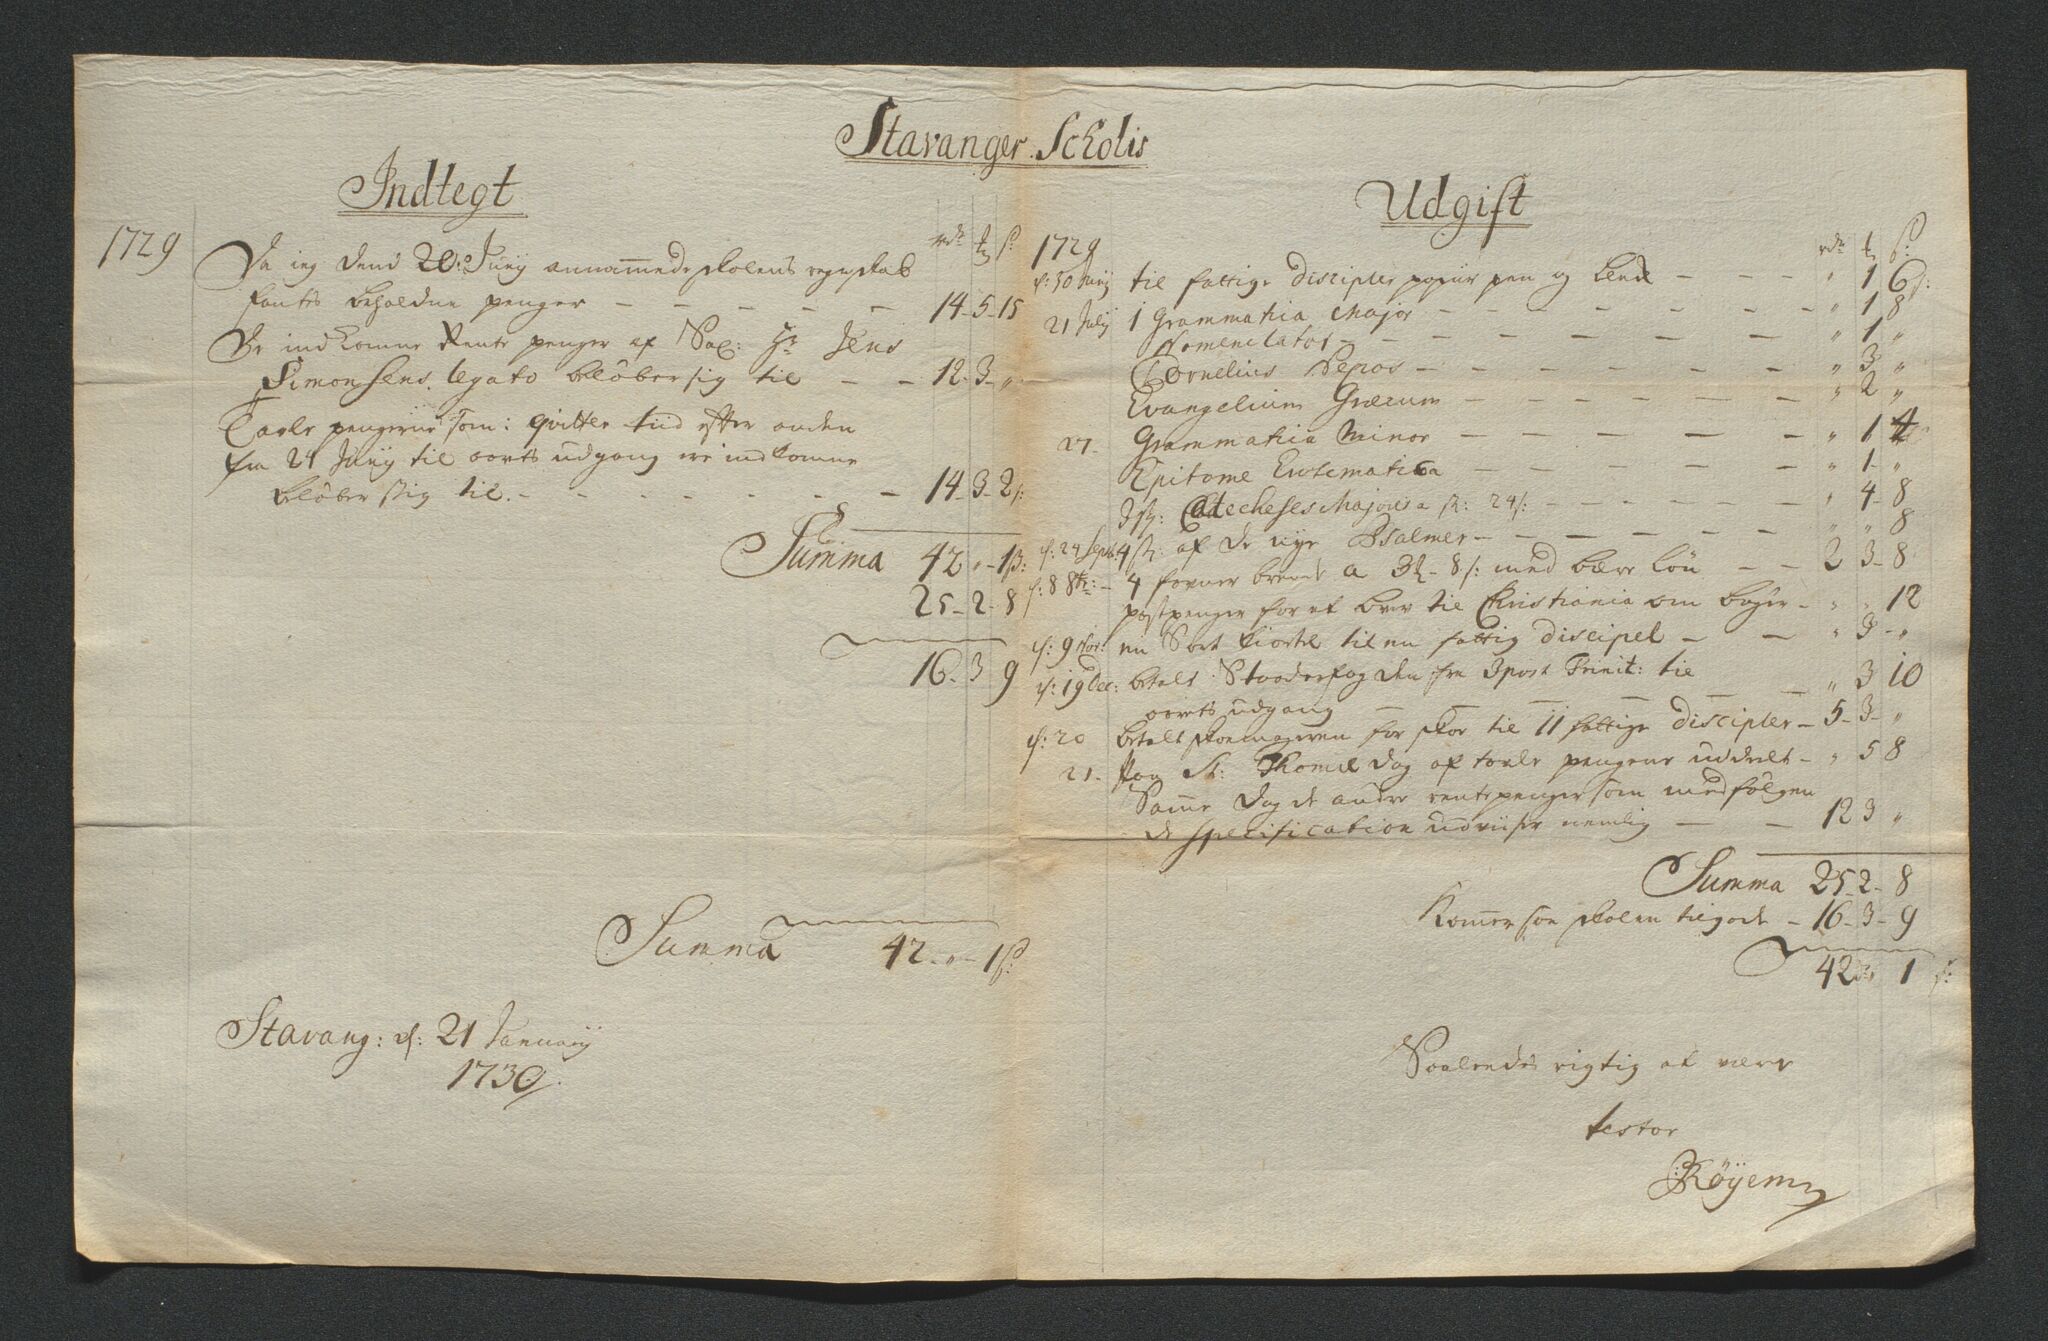 Stavanger Scholis
Indtegt
rdr. ₥ s:
1729
Da ieg dend 20: Junij annammede skolens regnskab
fantes beholdne penger – – – – – 14 - 5 - 15
De indkomne Rente penger af Sal: Hr Jens
Simonsens legato beløber sig til – – 12 - 3 - "
Tavle pengerne som: qvitter tiid efter anden
fra 24 Junij til aarts udgang ere indkomne
beløber sig til. – – – – – – – 14 - 3 - 2 s:
Summa 42 " - 1 s:
25 - 2 - 8
16 - 3 9
Summa 42 - " - 1 s:
Stavang: d: 21 Januarij
1730.
Udgift
rdr ₥ s:
1729
d: 30 Junij til fattige discipler papiir pen og blek – – – " 1 6 s:
21 Julij 1 Grammatica Major – – – – – – – " 1 8
Nomenclator – – – – – – " 1 "
Cornelius Nepos – – – – – – " 3 "
Evangelium Græcum – – – – – " 2 "
27. Grammatica Minor – – – – – " 1 4
Epitome Erotematica – – – – – " 1 - "
3 st: Catecheses Majores a st: 24 s: – – – – " 4 - 8
d: 24 Sept: 4 st: af de nye Psalmer – – – – – " " 8
d: 8 8br: – 4 favner brende a 3 ₥ - 8 s: med bære løn – – 2 3 - 8
postpenger for et brev til Christiania om bøger – " " 12
d: 9 Nov: en Sort kiortel til en fattig discipel – – " 3 - "
d: 19 Dec: betalt Stoderfogden fra 3 post Trinit: til
aarets udgang – – – – – " 3 10
d: 20 betalt skomageren for skoe til 11 fattige discipler – 5 - 3 - "
21. Paa St: Thomæ dag af tavle pengene uddeelt – " 5 8
Samme dag de andre rentepenger som medfølgen
de specification udviiser nemlig – – 12 3 "
Summa 25 - 2 - 8
Kommer saa skolen tilgode – 16 - 3 - 9
42 " 1 s:
Saaledes rigtig at være
testor
Røyem